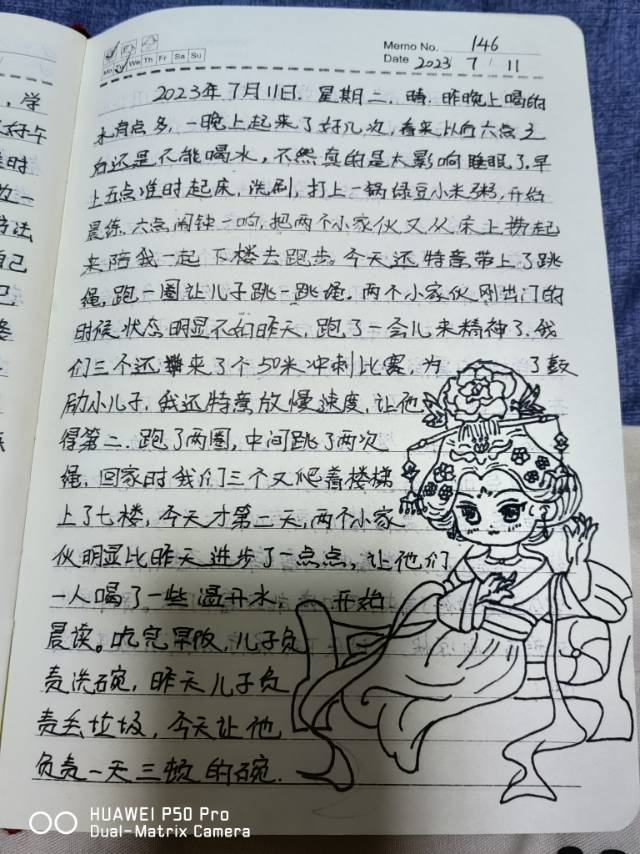 Memo No. 146
Mo Tu We Th Fr Sa Su
Date 2023 7 11
，学
2023年7月11日. 星期二. 晴. 昨晚上喝的
水有点多, 一晚上起来了好几次, 看来以后六点之
后还是不能喝水, 不然真的是太影响睡眠了. 早
上五点准时起床, 洗刷, 打上一锅绿豆小米粥, 开始
晨练. 六点闹钟一响, 把两个小家伙又从床上拽起
来陪我一起下楼去跑步. 今天还特意带上了跳
绳, 跑一圈让儿子跳一跳绳. 两个小家伙刚出门的
时候状态明显不如昨天, 跑了一会儿来精神了. 我
们三个还来了个50米冲刺比赛, 为了鼓
励小儿子, 我还特意放慢速度, 让他
得第二. 跑了两圈, 中间跳了两次
绳, 回家时我们三个又爬着楼梯
上了七楼, 今天才第二天, 两个小家
伙明显比昨天进步了一点点, 让他们
一人喝了一些温开水, 开始
晨读。吃完早饭, 儿子负
责洗碗, 昨天儿子负
责丢垃圾, 今天让他
负责一天三顿的碗.
HUAWEI P50 Pro
Dual-Matrix Camera